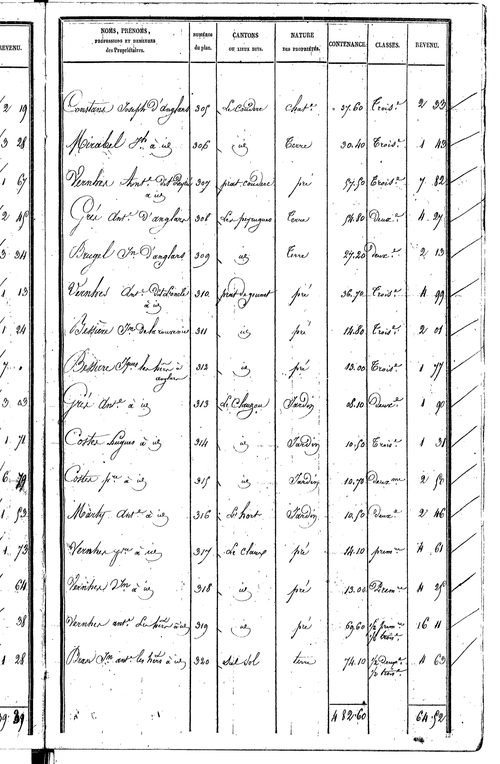 REVENU.
NOMS, PRENOMS, PROFESSIONS ET DEMEURES des Propriétaires.
NUMÉROS du plan.
CANTONS OU LIEUX DITS.
NATURE DES PROPRIÉTÉS.
CONTENANCE.
CLASSES.
REVENU.
2 19
Constans Joseph D'anglars 305 Le Coudre chat.e 37.60 Trois.e 2 33
3 28
Mirabel à id 306 id Terre 30.40 Trois.e 1 43
1 67
Vernhes Ant.e à id 307 prat coudere pré 57.50 Trois.e 7 82
2 45
Grés Ant.e D'anglars 308 Les peyrugues Terre 54.80 Deux.e 4 27
3 34
Brugel J.n D'anglars 309 id Terre 27.20 Deux.e 2 13
1 13
Vernhes Ant.e à id 310 pré 36.70 Trois.e 4 99
1 24
Bessiere 311 id pré 14.80 Trois.e 2 01
7
Bessiere les hérs à anglars 312 id pré 13.00 Trois.e 1 77
3 03
Grés Ant.e à id 313 Jardin 08.10 Deux.e 1 90
1 71
Costes Hugues à id 314 id Jardin 10.50 Trois.e 1 31
6 79
Costes à id 315 id Jardin 10.70 Deuxme 2 50
1 53
Marty Ant.e à id 316 L'hort Jardin 10.50 Deux.e 2 46
1 73
Vernhes à id 317 Le claux pré 14.10 prem.re 4 61
64
Vernhes à id 318 id pré 13.00 Prem.re 4 25
38
Vernhes ant.e Les hérs à id 319 id pré 69.60 1/2 prem.re 1/2 trois.e 16 11
1 28
ant.e les hérs à id 320 sol terre 74.10 1/2 Deux.e 1/2 trois.e 4 63
39.39
482.60
64.52